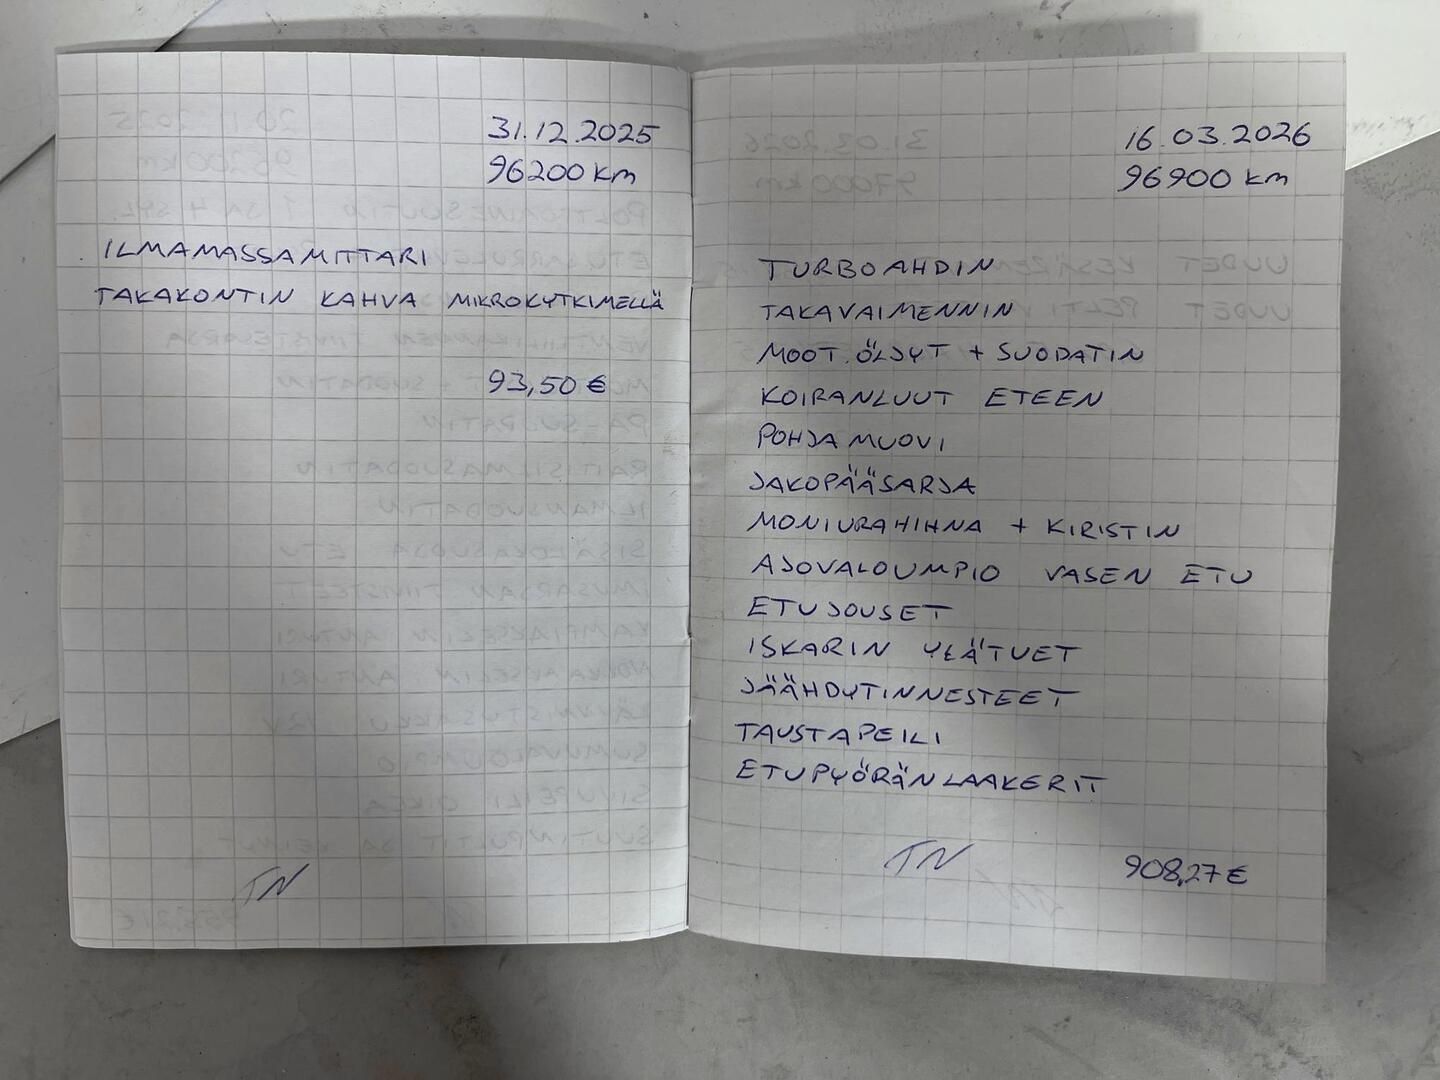 31.12.2025
96200 km
ILMAMASSAMITTARI
TAKAKONTIN KAHVA MIKROKYTKIMELLÄ
93,50 €
TN
16.03.2026
96900 km
TURBOAHDIN
TAKAVAIMENNIN
MOOT.ÖLJYT + SUODATIN
KOIRANLUUT ETEEN
POHJAMUOVI
JAKOPÄÄSARJA
MONIURAHIHNA + KIRISTIN
AJOVALOUMPIO VASEN ETU
ETUJOUSET
ISKARIN YLÄTUET
JÄÄHDYTINNESTEET
TAUSTAPEILI
ETUPYÖRÄNLAAKERIT
TN
908,27 €